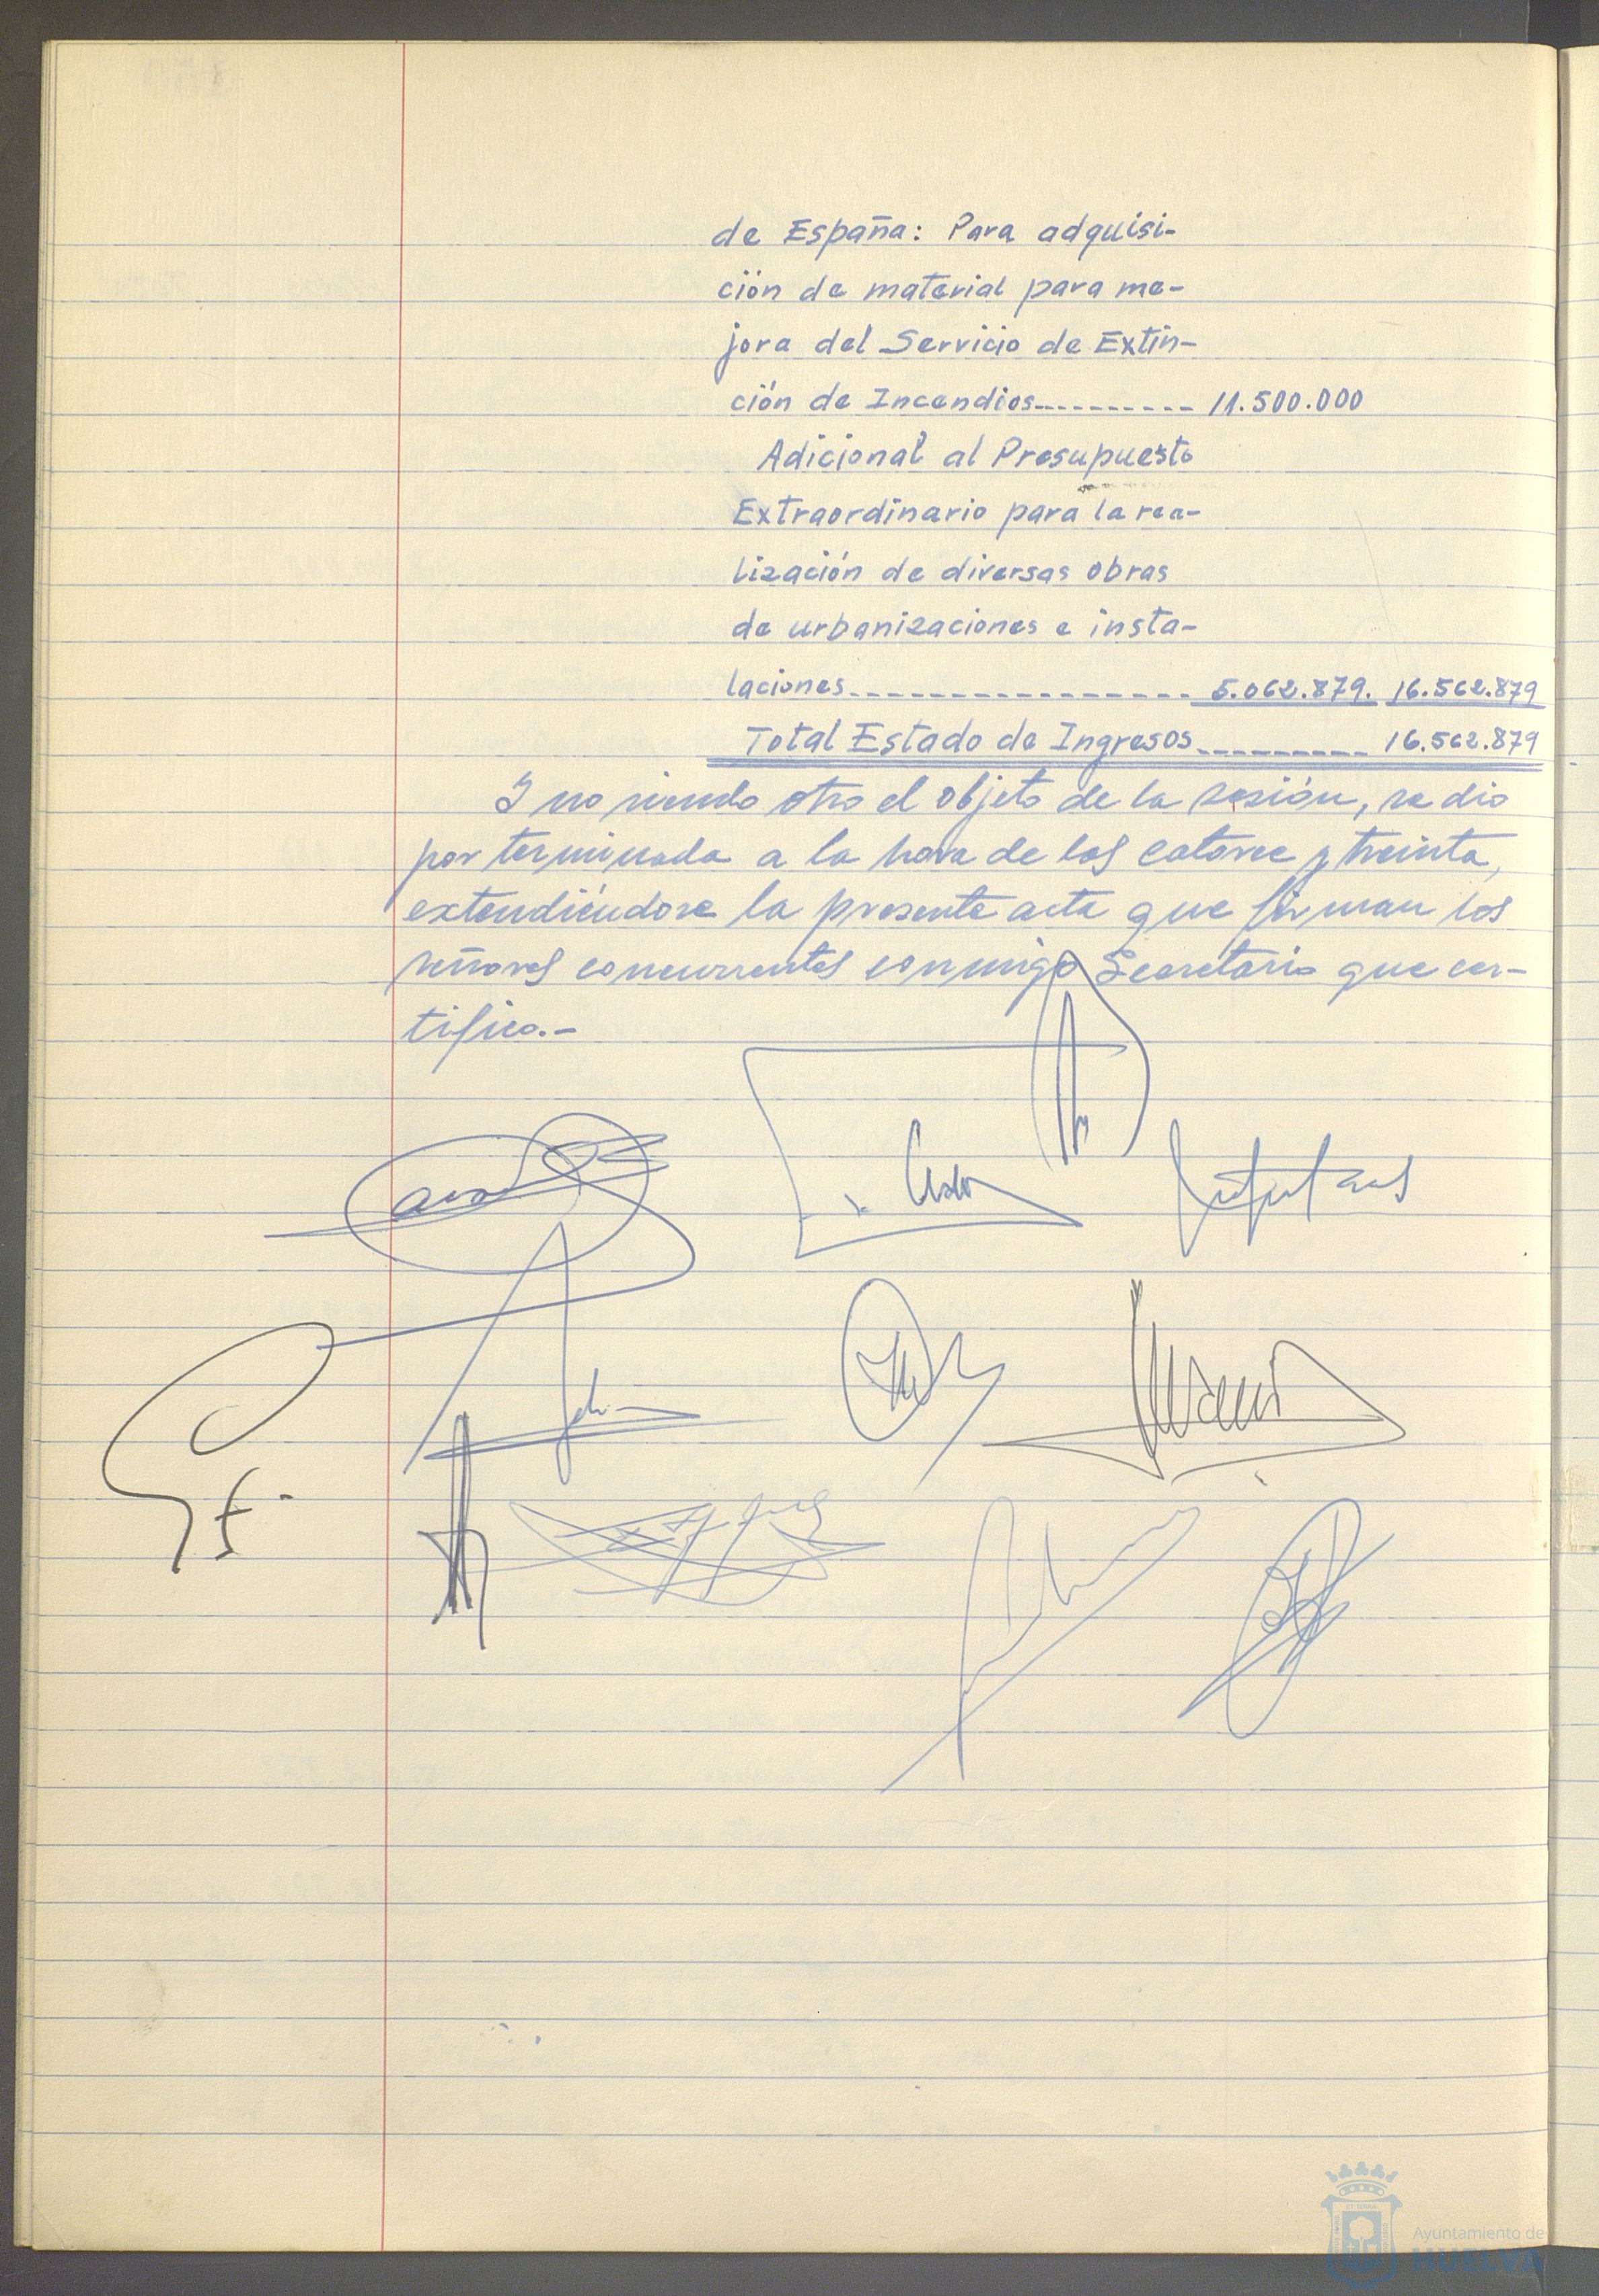 de España: Para adquisi-
ción de material para me-
jora del Servicio de Extin-
ción de Incendios.......... 11.500.000
Adicional al Presupuesto
Extraordinario para la rea-
lización de diversas obras
de urbanizaciones e insta-
laciones.................. 5.062.879. 16.562.879
Total Estado de Ingresos.......... 16.562.879
Y no siendo otro el objeto de la sesión, se dio
por terminada a la hora de las catorce y treinta,
extendiéndose la presente acta que firman los
señores concurrentes conmigo Secretario que cer-
tifico.-
Ayuntamiento de
HUELVA